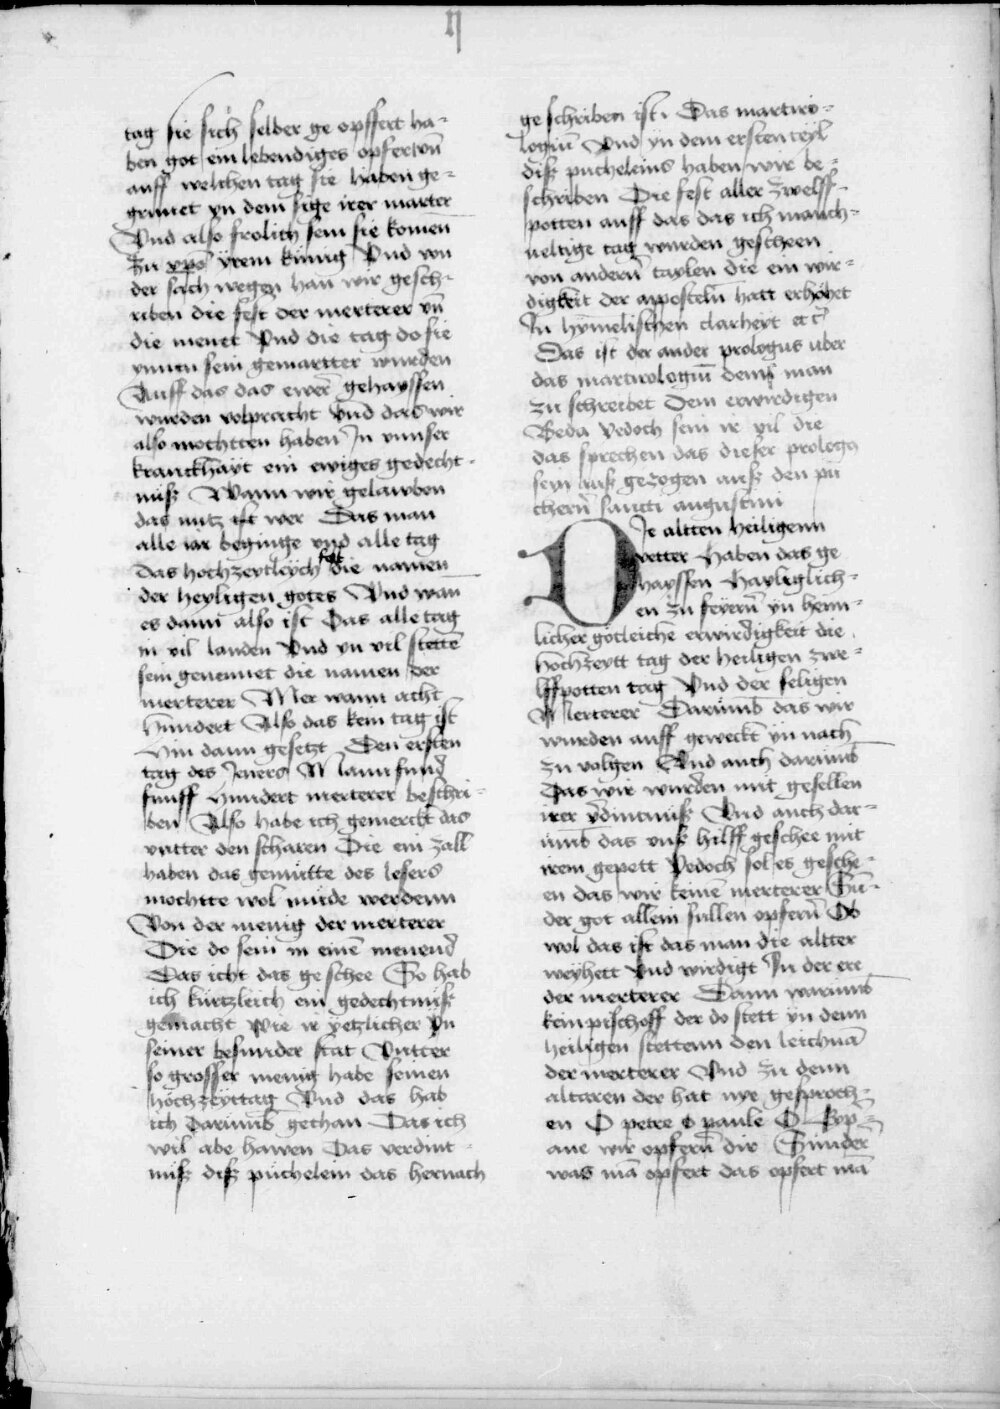 II
tag sie sich selber ge opffert ha-
ben got ein lebendiges opfer vnd
auff welchen tag sie haben ge-
grunet yn dem sige irer marter
Vnd also frolich sein sie komen
zu xpo yrem kunig Vnd von
der sach wegen han wir gesch-
riben die fest der merterer vn̄
die menet Vnd die tag do sie
ynnen sein gemartter wurden
Auff das das ewer gehayssen
wurden volpracht vnd das wir
also mochtten haben In vnnser
kranckhayt ein ewiges gedecht-
niß Wann wir gelauben
das nutz ist wer Das man
alle iar beginge vnd alle tag
das hochzeytleych fest die namen
der heyligen gotes Vnd wan
es dann also ist Das alle tag
in vil landen Vnd yn vil stetten
sein genennet die namen der
merterer Mer wann acht
hundert Also das kein tag ist
hin dann gesetzt Den ersten
tag des Jeners Mann fund
funff hundert merterer beschri-
ben Also habe ich gemerckt das
vntter den scharen Die ein zall
haben das gemutte des lesers
mochtte wol müde werdenn
Von der menig der merterer
Die do sein in einē menend
Das icht das geschee So hab
ich kurtzleich ein gedechtniß
gemacht Wie ir yetzlicher yn
seiner besunder stat Vntter
so grosser menig habe seinen
hochzeyttag Vnd das hab
ich darumb gethan Das ich
wil abe hawen Das verdint-
niß diß püchelein das hernach
ge schriben ist Das martiro-
logiū Vnd yn dem ersten teyl
diß pucheleins haben wir be-
schriben Die fest aller zwelff-
potten auff das das ich manch-
ueltige tag wurden gescheen
von andern taylen die ein wir-
digkeit der apposteln hatt erhohet
In hymelischen clarheyt etc̄
Das ist der ander prologus uber
das martirologiū dem man
zu schreibet Dem erwirdigen
Beda yedoch sein ir vil die
das sprechen das dieser prologo
sein auß gezogen auß den pu
chern̄ sancti augustini
DJe altten heiligenn
vetter haben das ge
hayssen hayliglich-
en zu feyern̄ yn heim-
licher gotleiche erwirdigkeit die
hochzeytt tag der heiligen zwe-
lffpotten tag Vnd der seligen
Merterer Darumb das wir
wurden auff geweckt yn nach
zu volgen Vnd auch darumb
Das wir wurden mit gesellen
irer v̄dintniß Vnd auch dar-
umb das vnß hilff geschee mit
irem gepett Yedoch sol es gesche-
en das wir keinē merterer Sū-
der got allein sullen opfern̄ Ob
wol das ist das man die altter
weyhett vnd wirdigt In der ere
der merterer Dann warumb
kein pischoff der do stett yn denn
heiligen stettenn den leichnā
der merterer Vnd zu denn
altaren der hat nye gesproch-
en O petre o paule O Cyp-
ane wir opfern̄ dir Sunder
was mā opfert das opfert mā